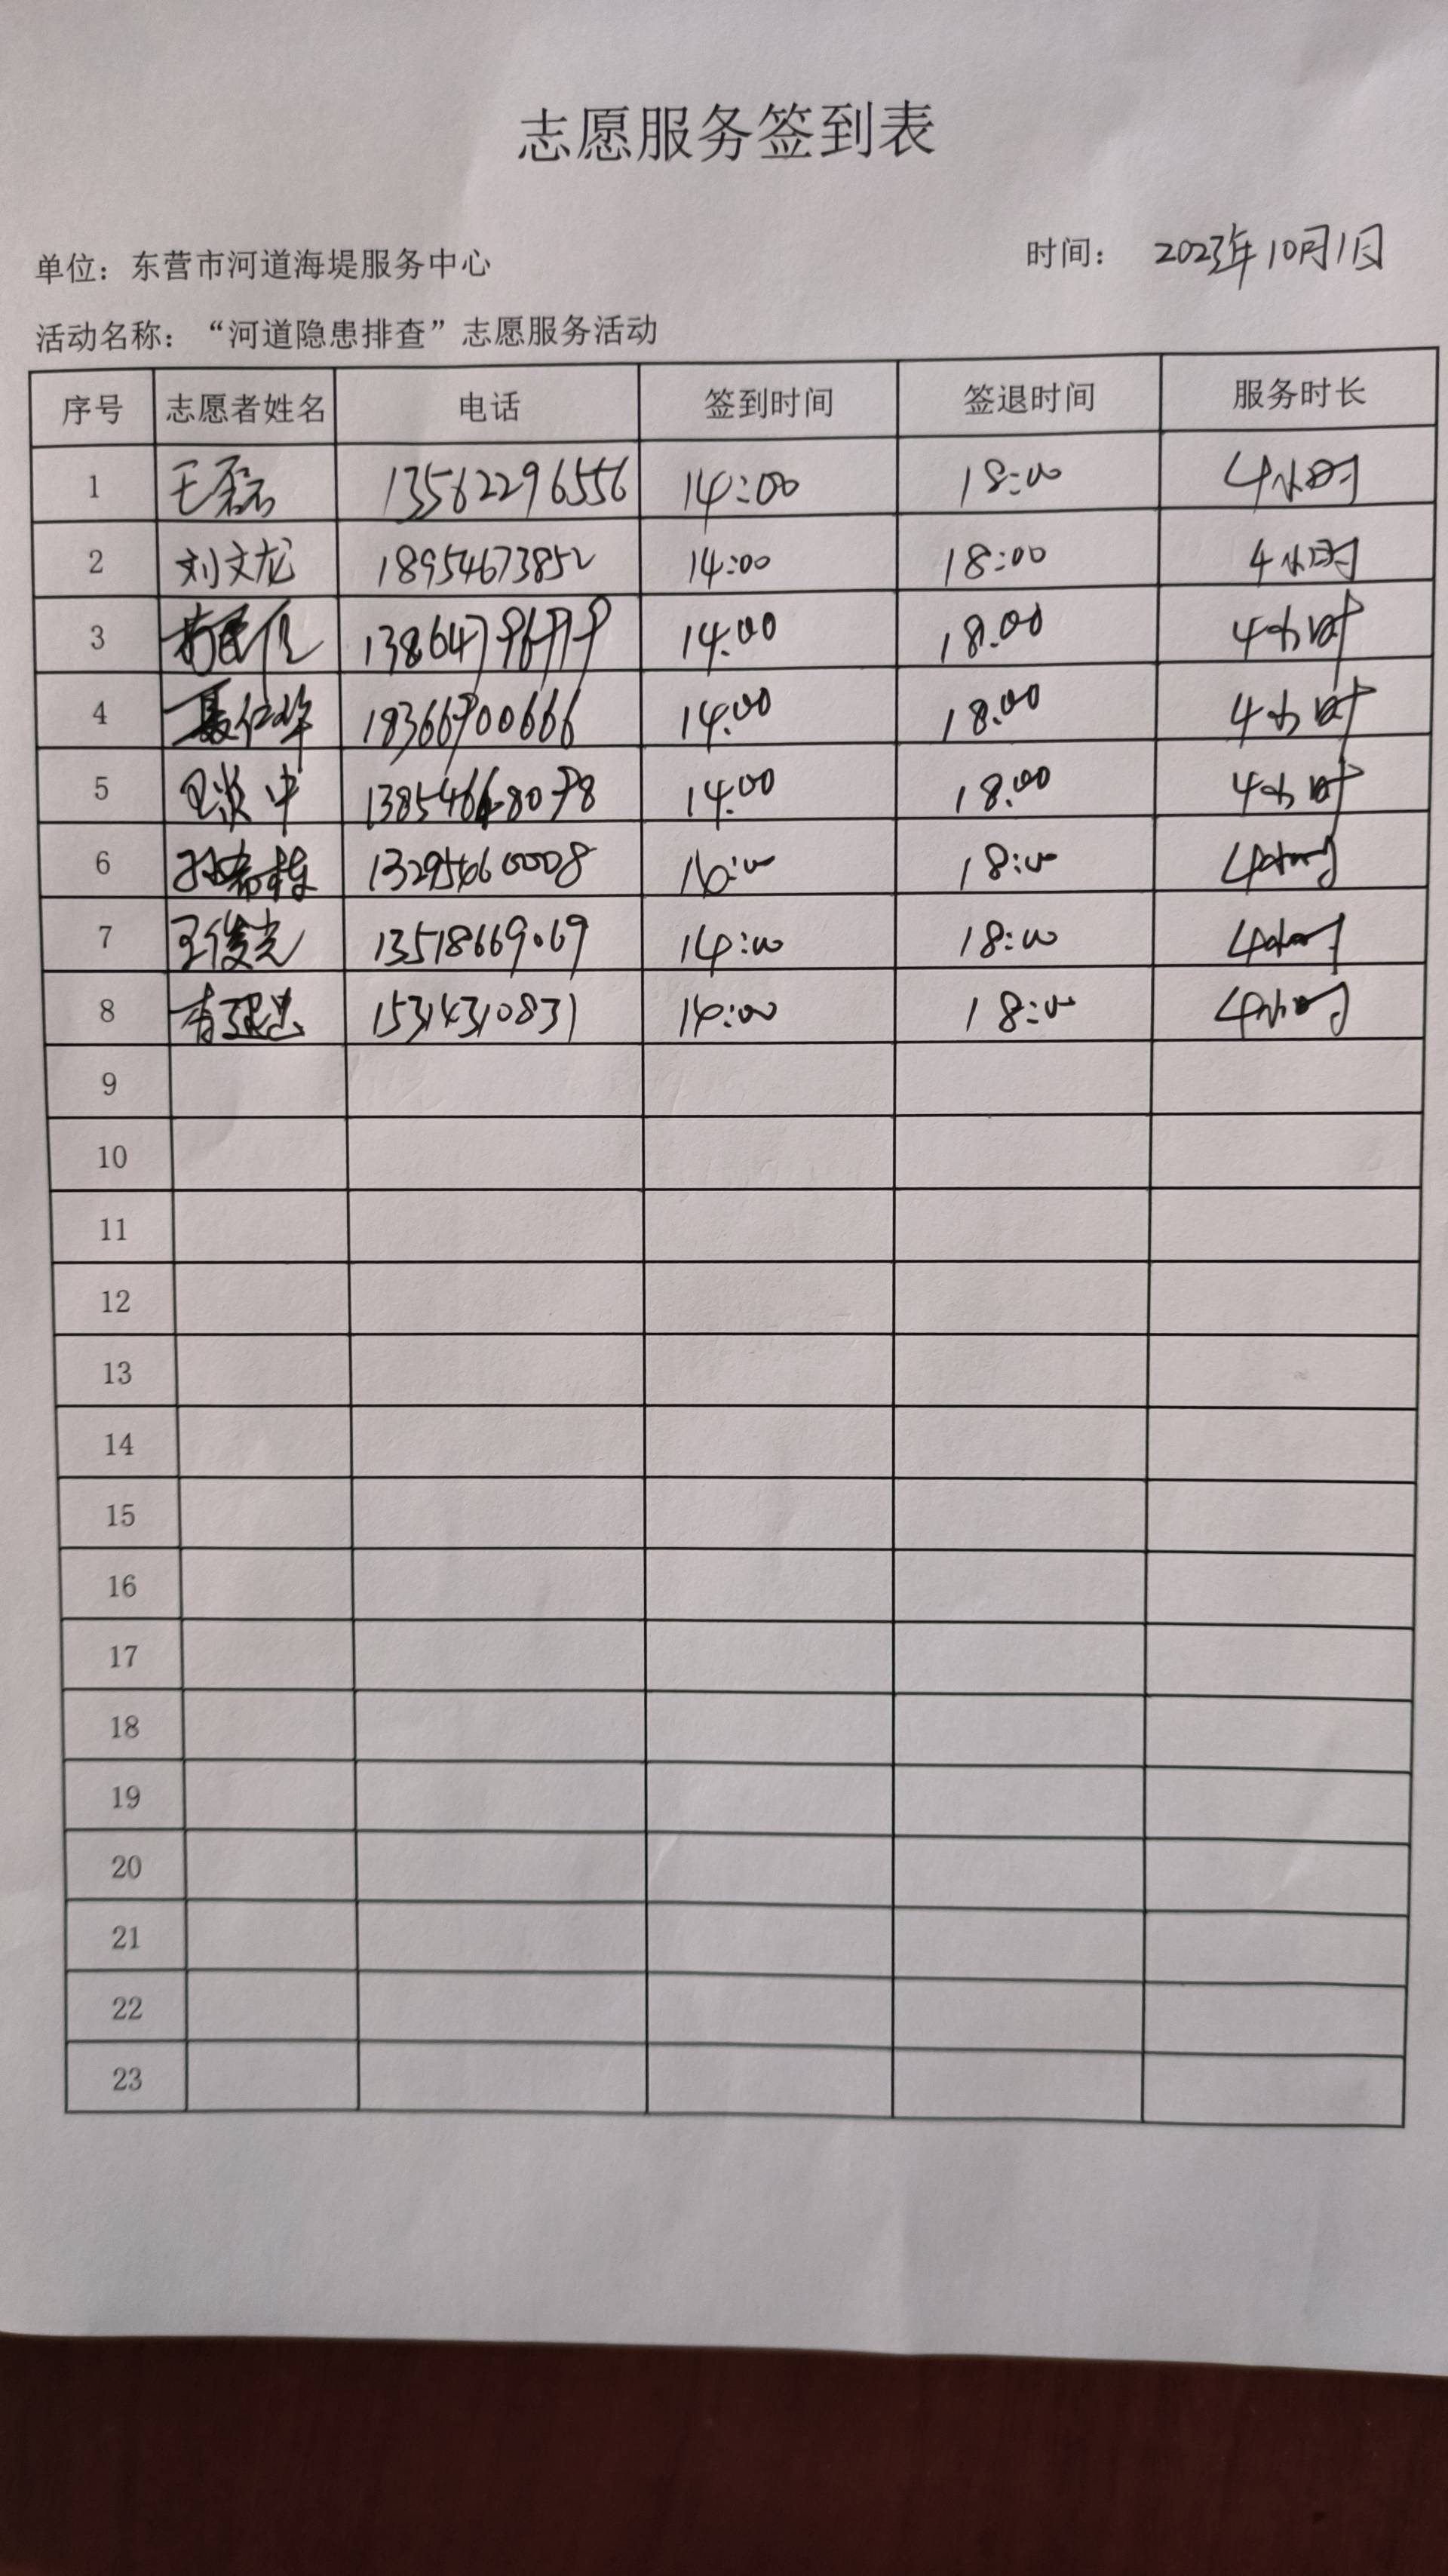 志愿服务签到表
单位：东营市河道海堤服务中心 时间： 2023年10月1日
活动名称：“河道隐患排查”志愿服务活动
序号 志愿者姓名 电话 签到时间 签退时间 服务时长
1 王磊 13562296556 14:00 18:00 4小时
2 刘文龙 18954673852 14:00 18:00 4小时
3 14:00 18:00 4小时
4 18366900666 14:00 18:00 4小时
5 14:00 18:00 4小时
6 13295660008 18:00 4小时
7 王俊光 13518669069 14:00 18:00 4小时
8 15314310831 14:00 18:00 4小时
9
10
11
12
13
14
15
16
17
18
19
20
21
22
23